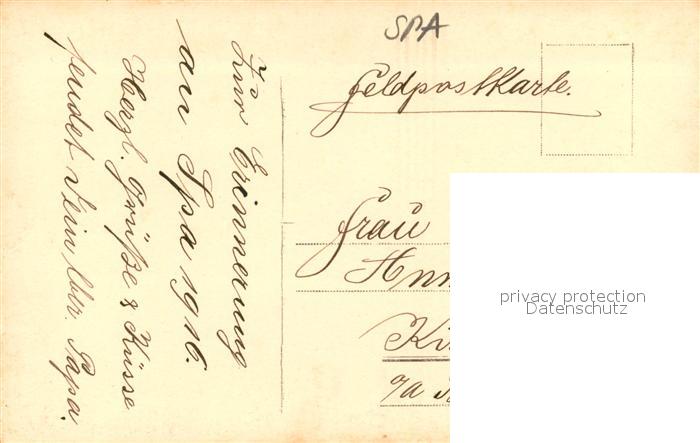 SPA
Feldpostkarte.
Zur Erinnerung
an Spa 1916.
Herzl. Grüße & Küsse
sendet Dein lbr. Papa.
Frau
Ann
Ki
a/d
privacy protection
Datenschutz